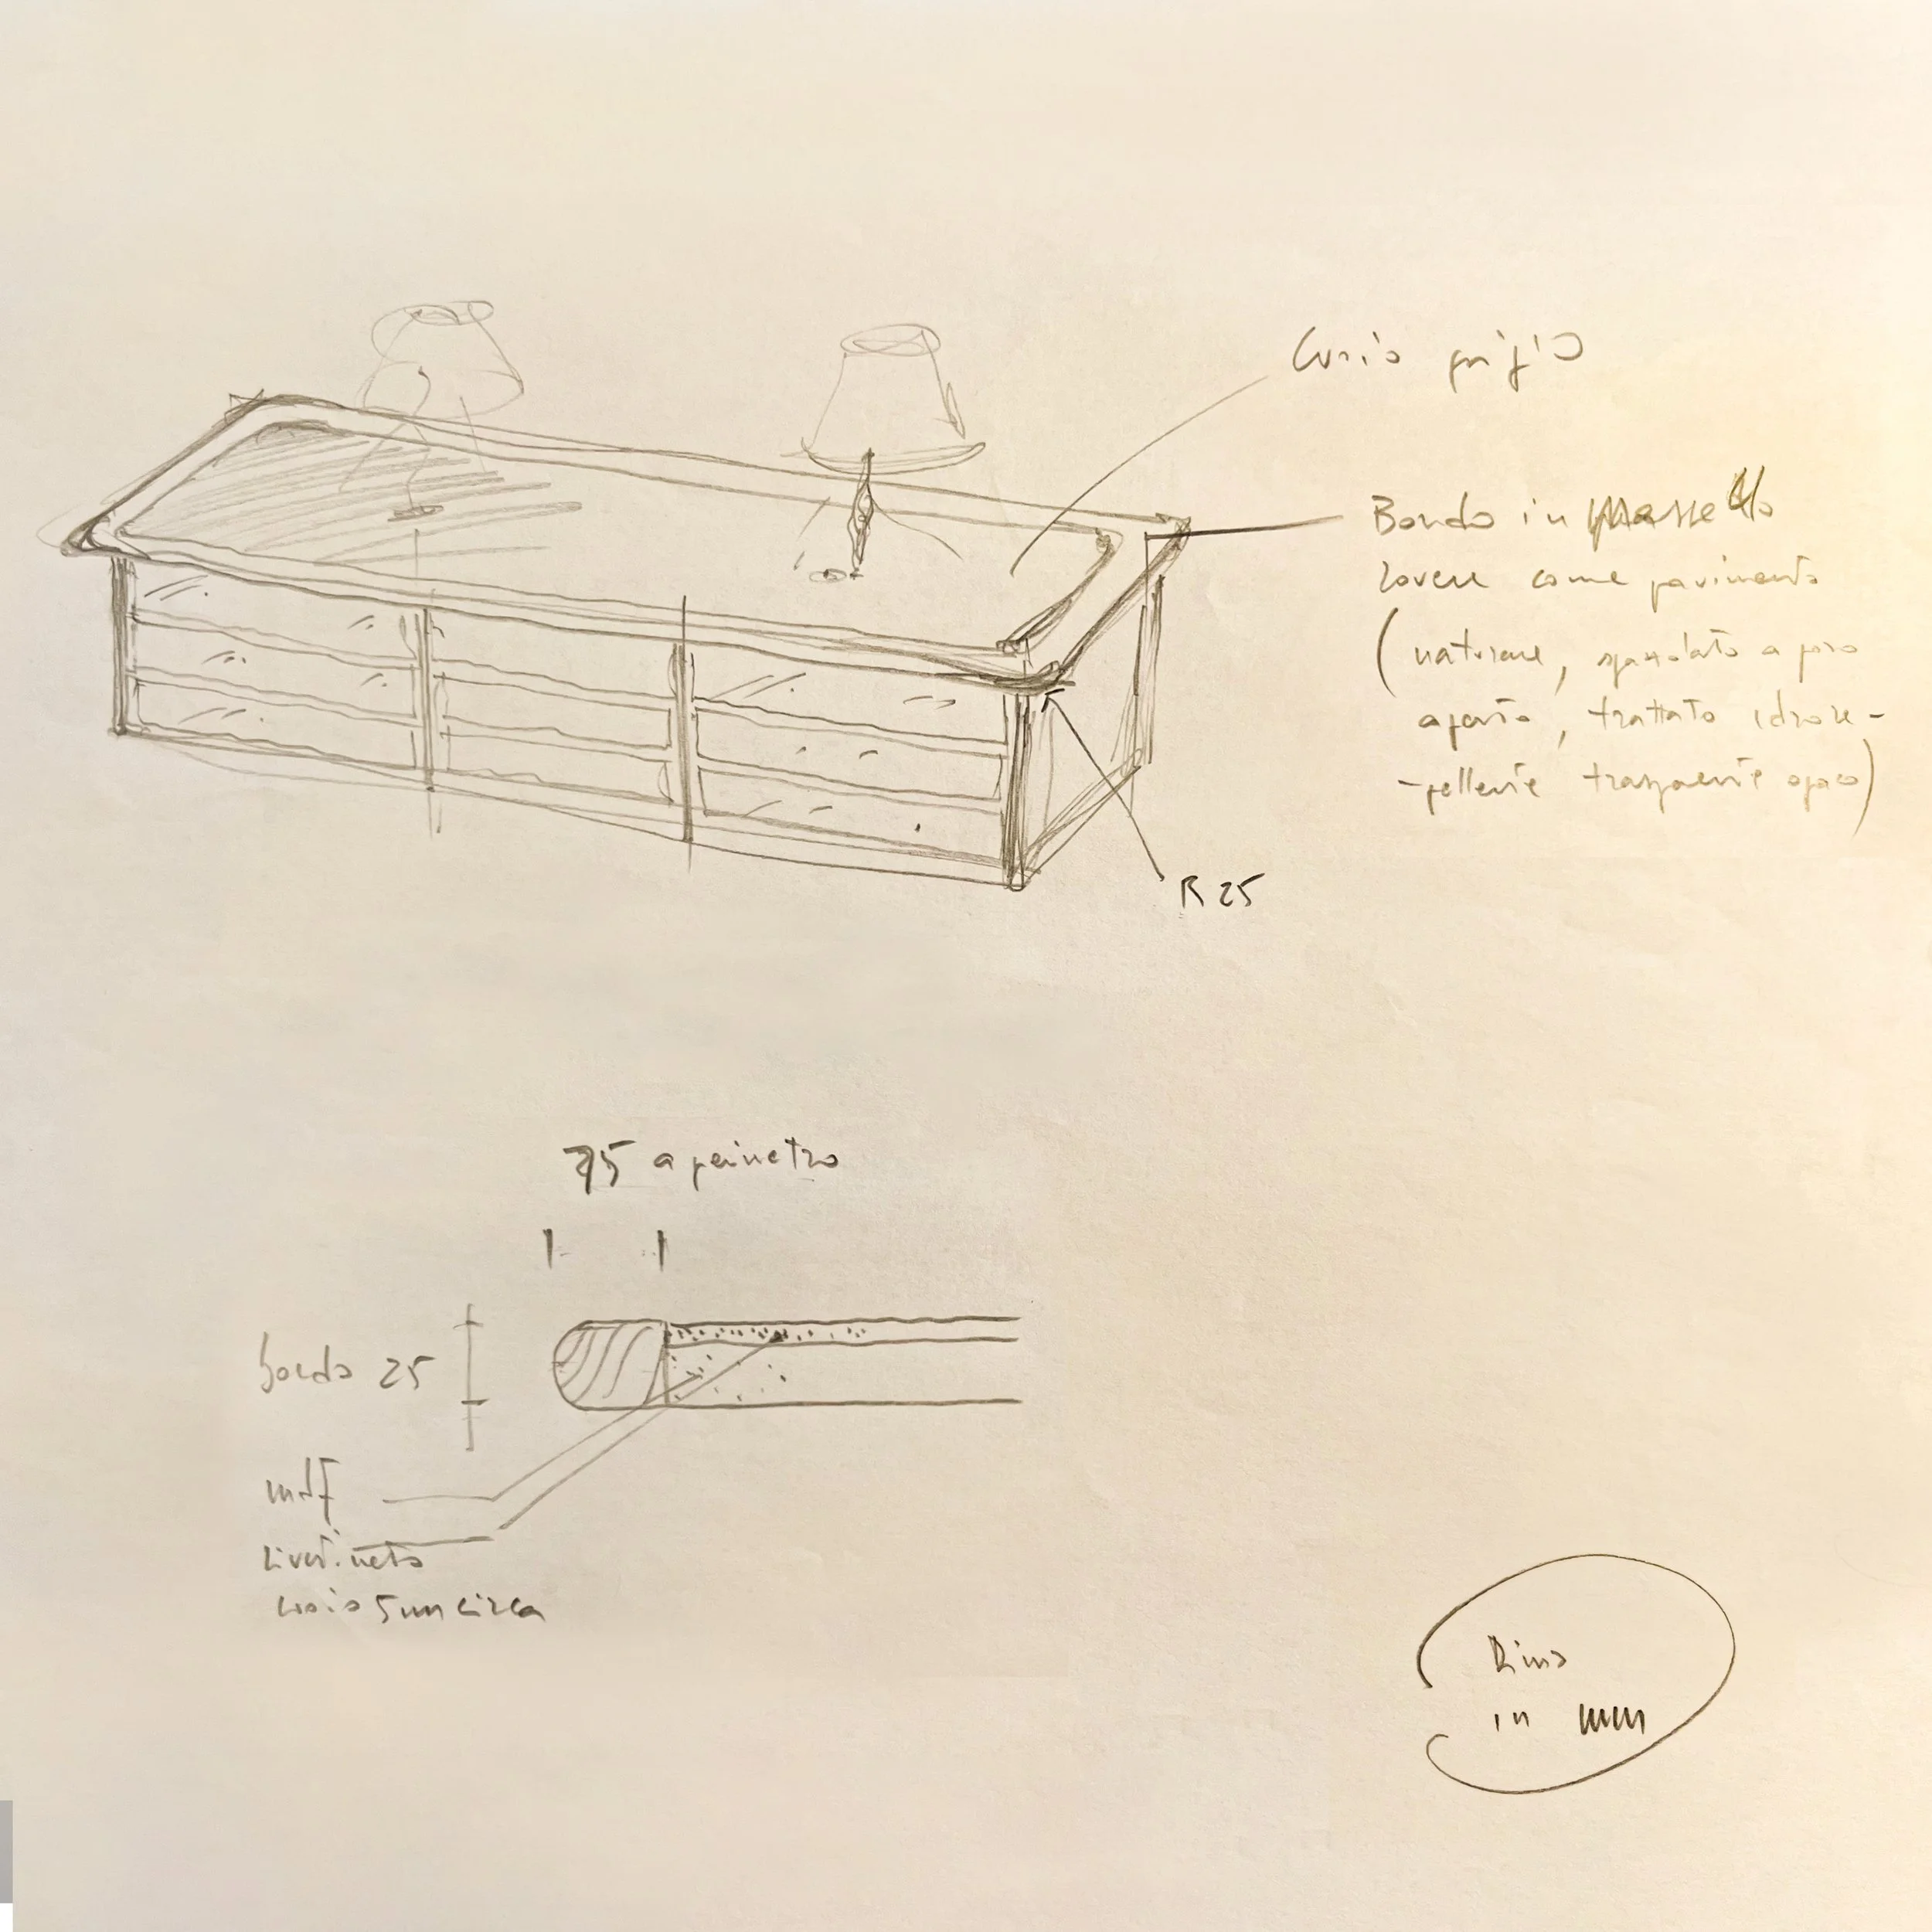 Cuoio grigio
Bordo in Massello
rovere come pavimento
(naturale, spazzolato a poro
aperto, trattato idrore-
-pellente trasparente opaco)
R 25
75 a perimetro
bordo 25
mdf
rivest.neto
cuoio 5 mm circa
Dims
in mm